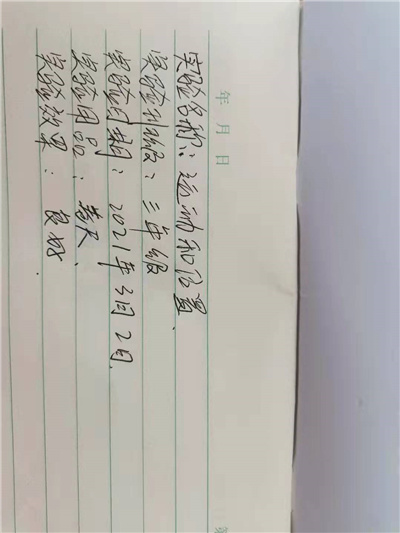 年 月 日
实验名称：运动和位置
实验年级：三年级
实验日期：2021年3月2日
实验用品：卷尺
实验效果：良好